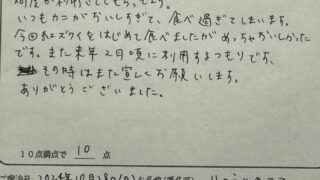 いつもカニがおいしすぎて、食べ過ぎてしまいます。
今回紅ズワイをはじめて食べましたがめっちゃおいしかった
です。また来年2月頃に利用するつもりです、
その時はまた宜しくお願いします。
ありがとうございました。
10点満点で 10 点